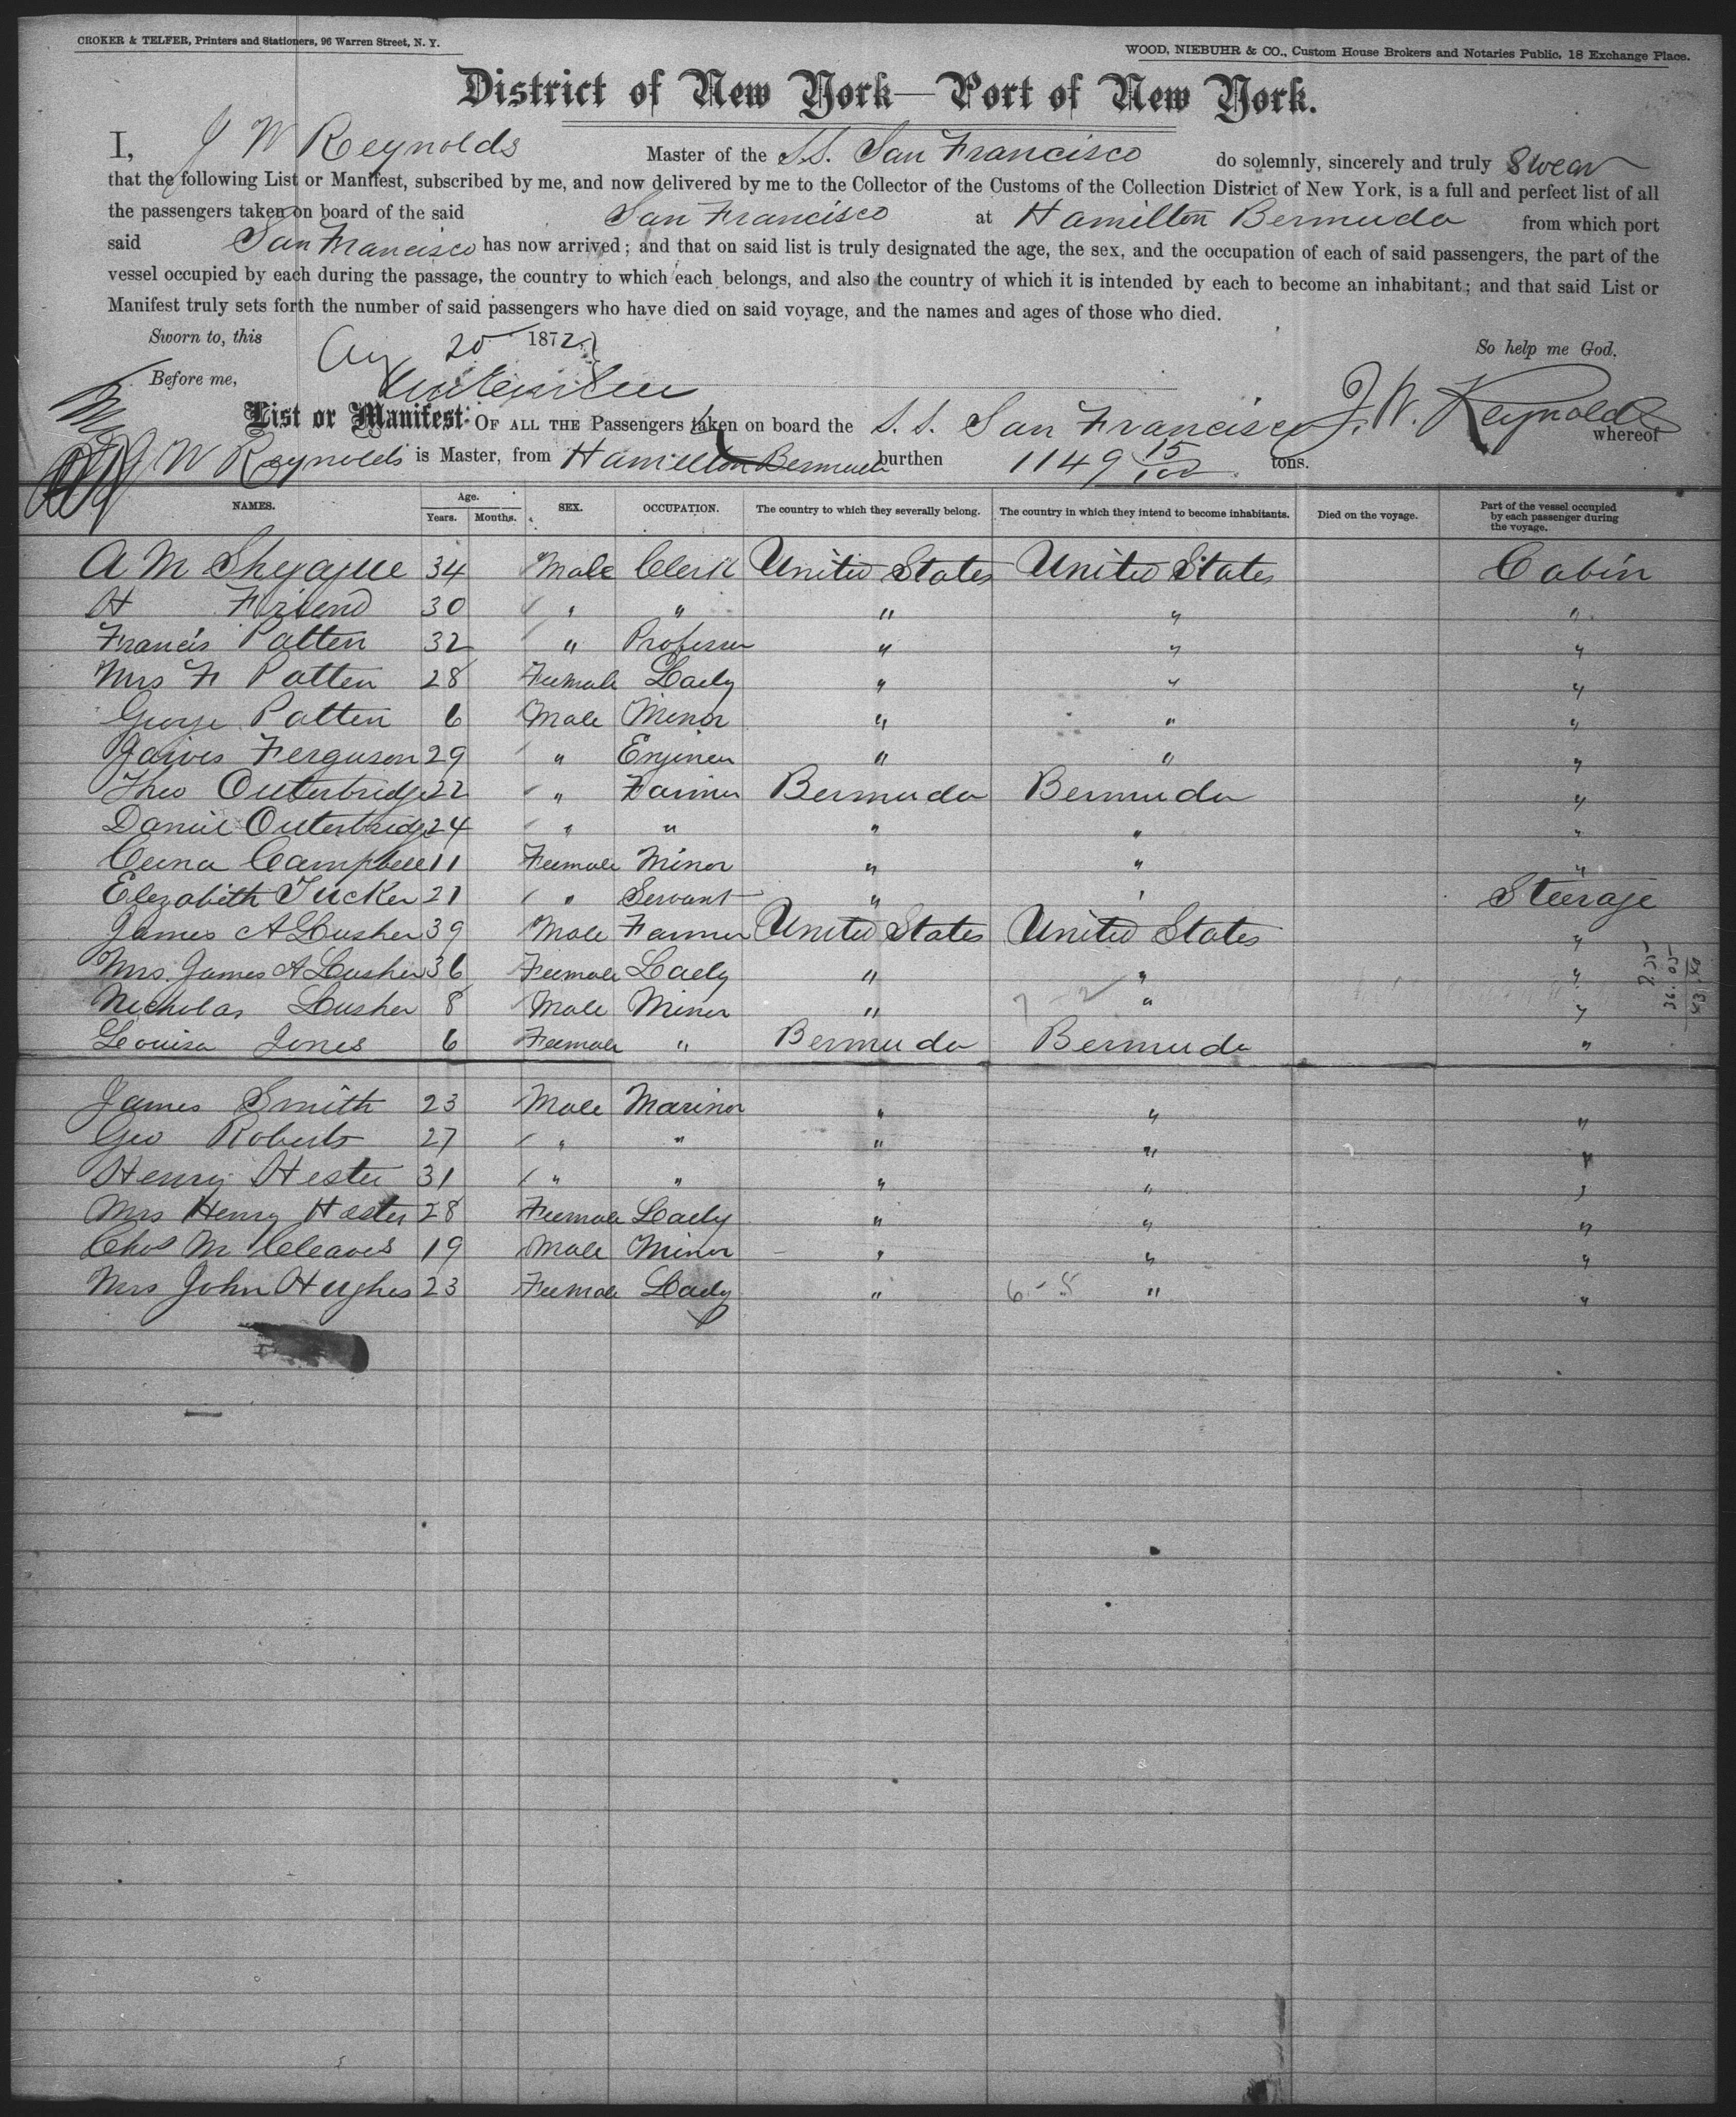 CROKER & TELFER, Printers and Stationers, 96 Warren Street, N. Y.
WOOD, NIEBUHR & CO., Custom House Brokers and Notaries Public, 18 Exchange Place.
District of New York—Port of New York.
I, J W Reynolds Master of the S.S. San Francisco do solemnly, sincerely and truly Swear
that the following List or Manifest, subscribed by me, and now delivered by me to the Collector of the Customs of the Collection District of New York, is a full and perfect list of all
the passengers taken on board of the said San Francisco at Hamilton Bermuda from which port
said San Francisco has now arrived; and that on said list is truly designated the age, the sex, and the occupation of each of said passengers, the part of the
vessel occupied by each during the passage, the country to which each belongs, and also the country of which it is intended by each to become an inhabitant; and that said List or
Manifest truly sets forth the number of said passengers who have died on said voyage, and the names and ages of those who died.
Sworn to, this Aug 20 1872 So help me God.
Before me, J. W. Reynolds
List or Manifest OF ALL THE Passengers taken on board the S. S. San Francisco whereof
J W Reynolds is Master, from Hamilton Bermuda burthen 1149 15/100 tons.
NAMES. Age. Years. Months. SEX. OCCUPATION. The country to which they severally belong. The country in which they intend to become inhabitants. Died on the voyage. Part of the vessel occupied by each passenger during the voyage.
A M 34 Male Clerk United States United States Cabin
H Friend 30 " " " " "
Francis Patten 32 " Professor " " "
Mrs F Patten 28 Feemale Lady " " "
George Patten 6 Male Minor " " "
Ferguson 29 " Enjineer " " "
Theo Outerbridge 22 " Farmer Bermuda Bermuda "
Daniel Outerbridge 24 " " " " "
Campbell 11 Feemale Minor " " "
Elezabith Tucker 21 " Servant " " Steeraje
James A Lusher 39 Male Farmer United States United States "
Mrs. James A Lusher 36 Feemale Lady " " "
Nicholas Lusher 8 Male Minor " " "
Louisa Jones 6 Feemale " Bermuda Bermuda "
James Smith 23 Male Marinor " " "
Geo Roberts 27 " " " " "
Henry Hester 31 " " " " "
Mrs Henry Hester 28 Feemale Lady " " "
Chas M Cleaves 19 Male Minor " " "
Mrs John Hughes 23 Feemale Lady " 6-5 " "
7.35
36.05
43.40